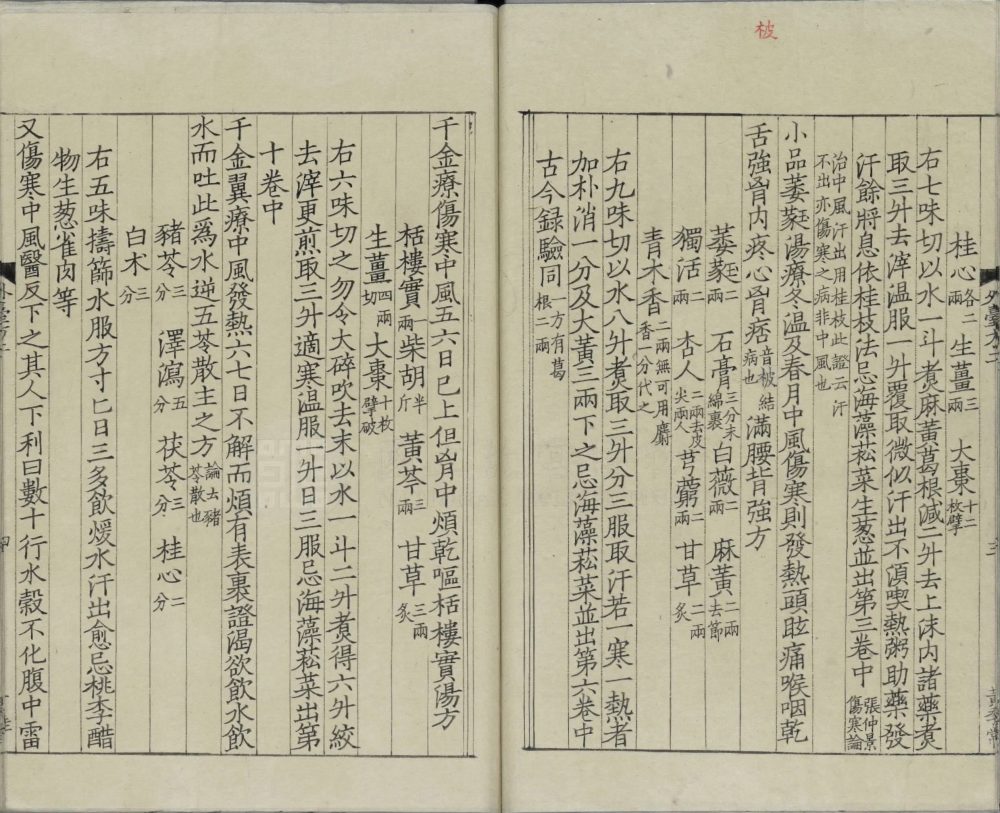 柀
桂心各二兩 生薑三兩 大棗十二枚擘
右七味切以水一斗煮麻黃葛根減二升去上沫內諸藥煮
取三升去滓溫服一升覆取微似汗出不湏喫熱粥助藥發
汗餘將息依桂枝法忌海藻菘菜生葱並出第三卷中張仲景傷寒論
治中風汗出用桂枝此證云汗不出亦傷寒之病非中風也
小品萎蕤湯療冬溫及春月中風傷寒則發熱頭眩痛喉咽乾
舌強胷內疼心胷痞病也音柀結滿腰背強方
萎蕤二兩 石膏三分末綿裹 白薇二兩 麻黃二兩去節
獨活二兩 杏人二兩去皮尖兩人 芎藭二兩 甘草二兩炙
青木香二兩無可用麝香一分代之
右九味切以水八升煮取三升分三服取汗若一寒一熱者
加朴消一分及大黃三兩下之忌海藻菘菜並出第六卷中
古今録驗同一方有葛根二兩
千金療傷寒中風五六日已上但胷中煩乾嘔栝樓實湯方
栝樓實一兩 柴胡半斤 黃芩三兩 甘草三兩炙
生薑四兩切 大棗十枚擘破
右六味切之勿令大碎吹去末以水一斗二升煮得六升絞
去滓更煎取三升適寒溫服一升日三服忌海藻菘菜出第
十卷中
千金翼療中風發熱六七日不解而煩有表裏證渴欲飲水飲
水而吐此爲水逆五苓散主之方論去豬苓散也
豬苓三分 澤瀉五分 茯苓三分 桂心二分
白朮三分
右五味擣篩水服方寸匕日三多飲煖水汗出愈忌桃李醋
物生葱雀肉等
又傷寒中風醫反下之其人下利日數十行水榖不化腹中雷